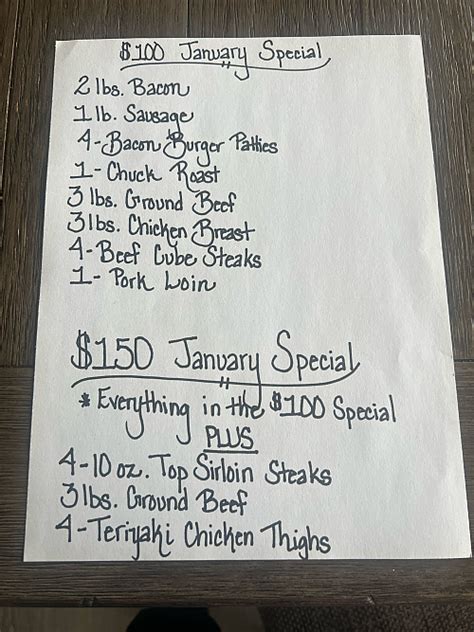 $100 January Special
2 lbs. Bacon
1 lb. Sausage
4-Bacon Burger Patties
1-Chuck Roast
3 lbs. Ground Beef
3 lbs. Chicken Breast
4-Beef Cube Steaks
1-Pork Loin
$150 January Special
* Everything in the $100 Special
PLUS
4-10 oz. Top Sirloin Steaks
3 lbs. Ground Beef
4-Teriyaki Chicken Thighs